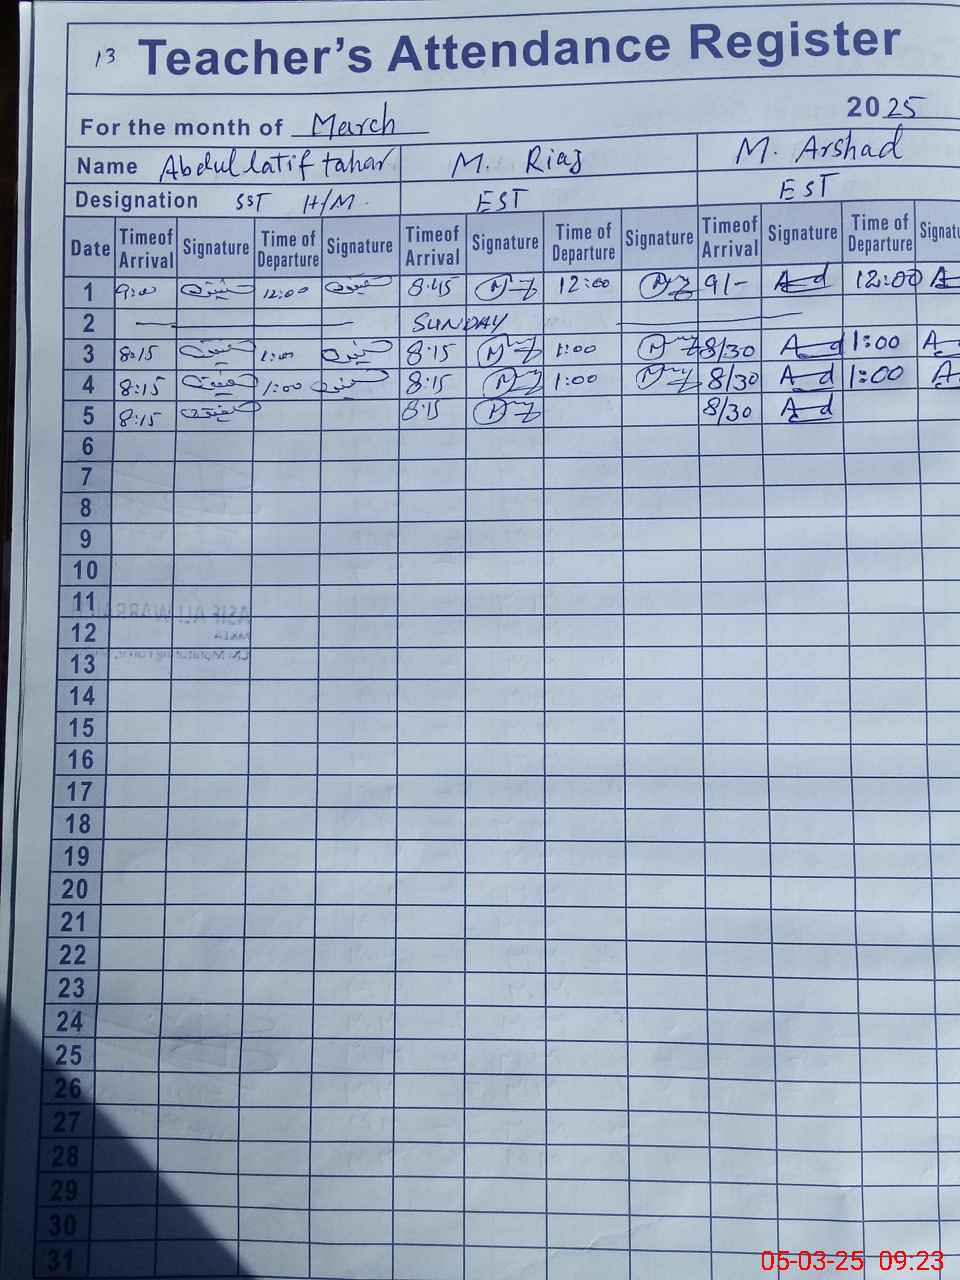 13 Teacher's Attendance Register
For the month of March 2025
Name Abdul latif tahar M. Riaz M. Arshad
Designation SST H/M. EST EST
Date Timeof Arrival Signature Time of Departure Signature Timeof Arrival Signature Time of Departure Signature Timeof Arrival Signature Time of Departure Signatu
1 9:00 12:00 8:45 12:00 9/- A d 12:00 A
2 SUNDAY
3 8:15 1:00 8:15 1:00 8/30 A d 1:00 A
4 8:15 1:00 8:15 1:00 8/30 A d 1:00 A
5 8:15 8:15 8/30 A d
6
7
8
9
10
11
12
13
14
15
16
17
18
19
20
21
22
23
24
25
26
27
28
29
30
31
05-03-25 09:23